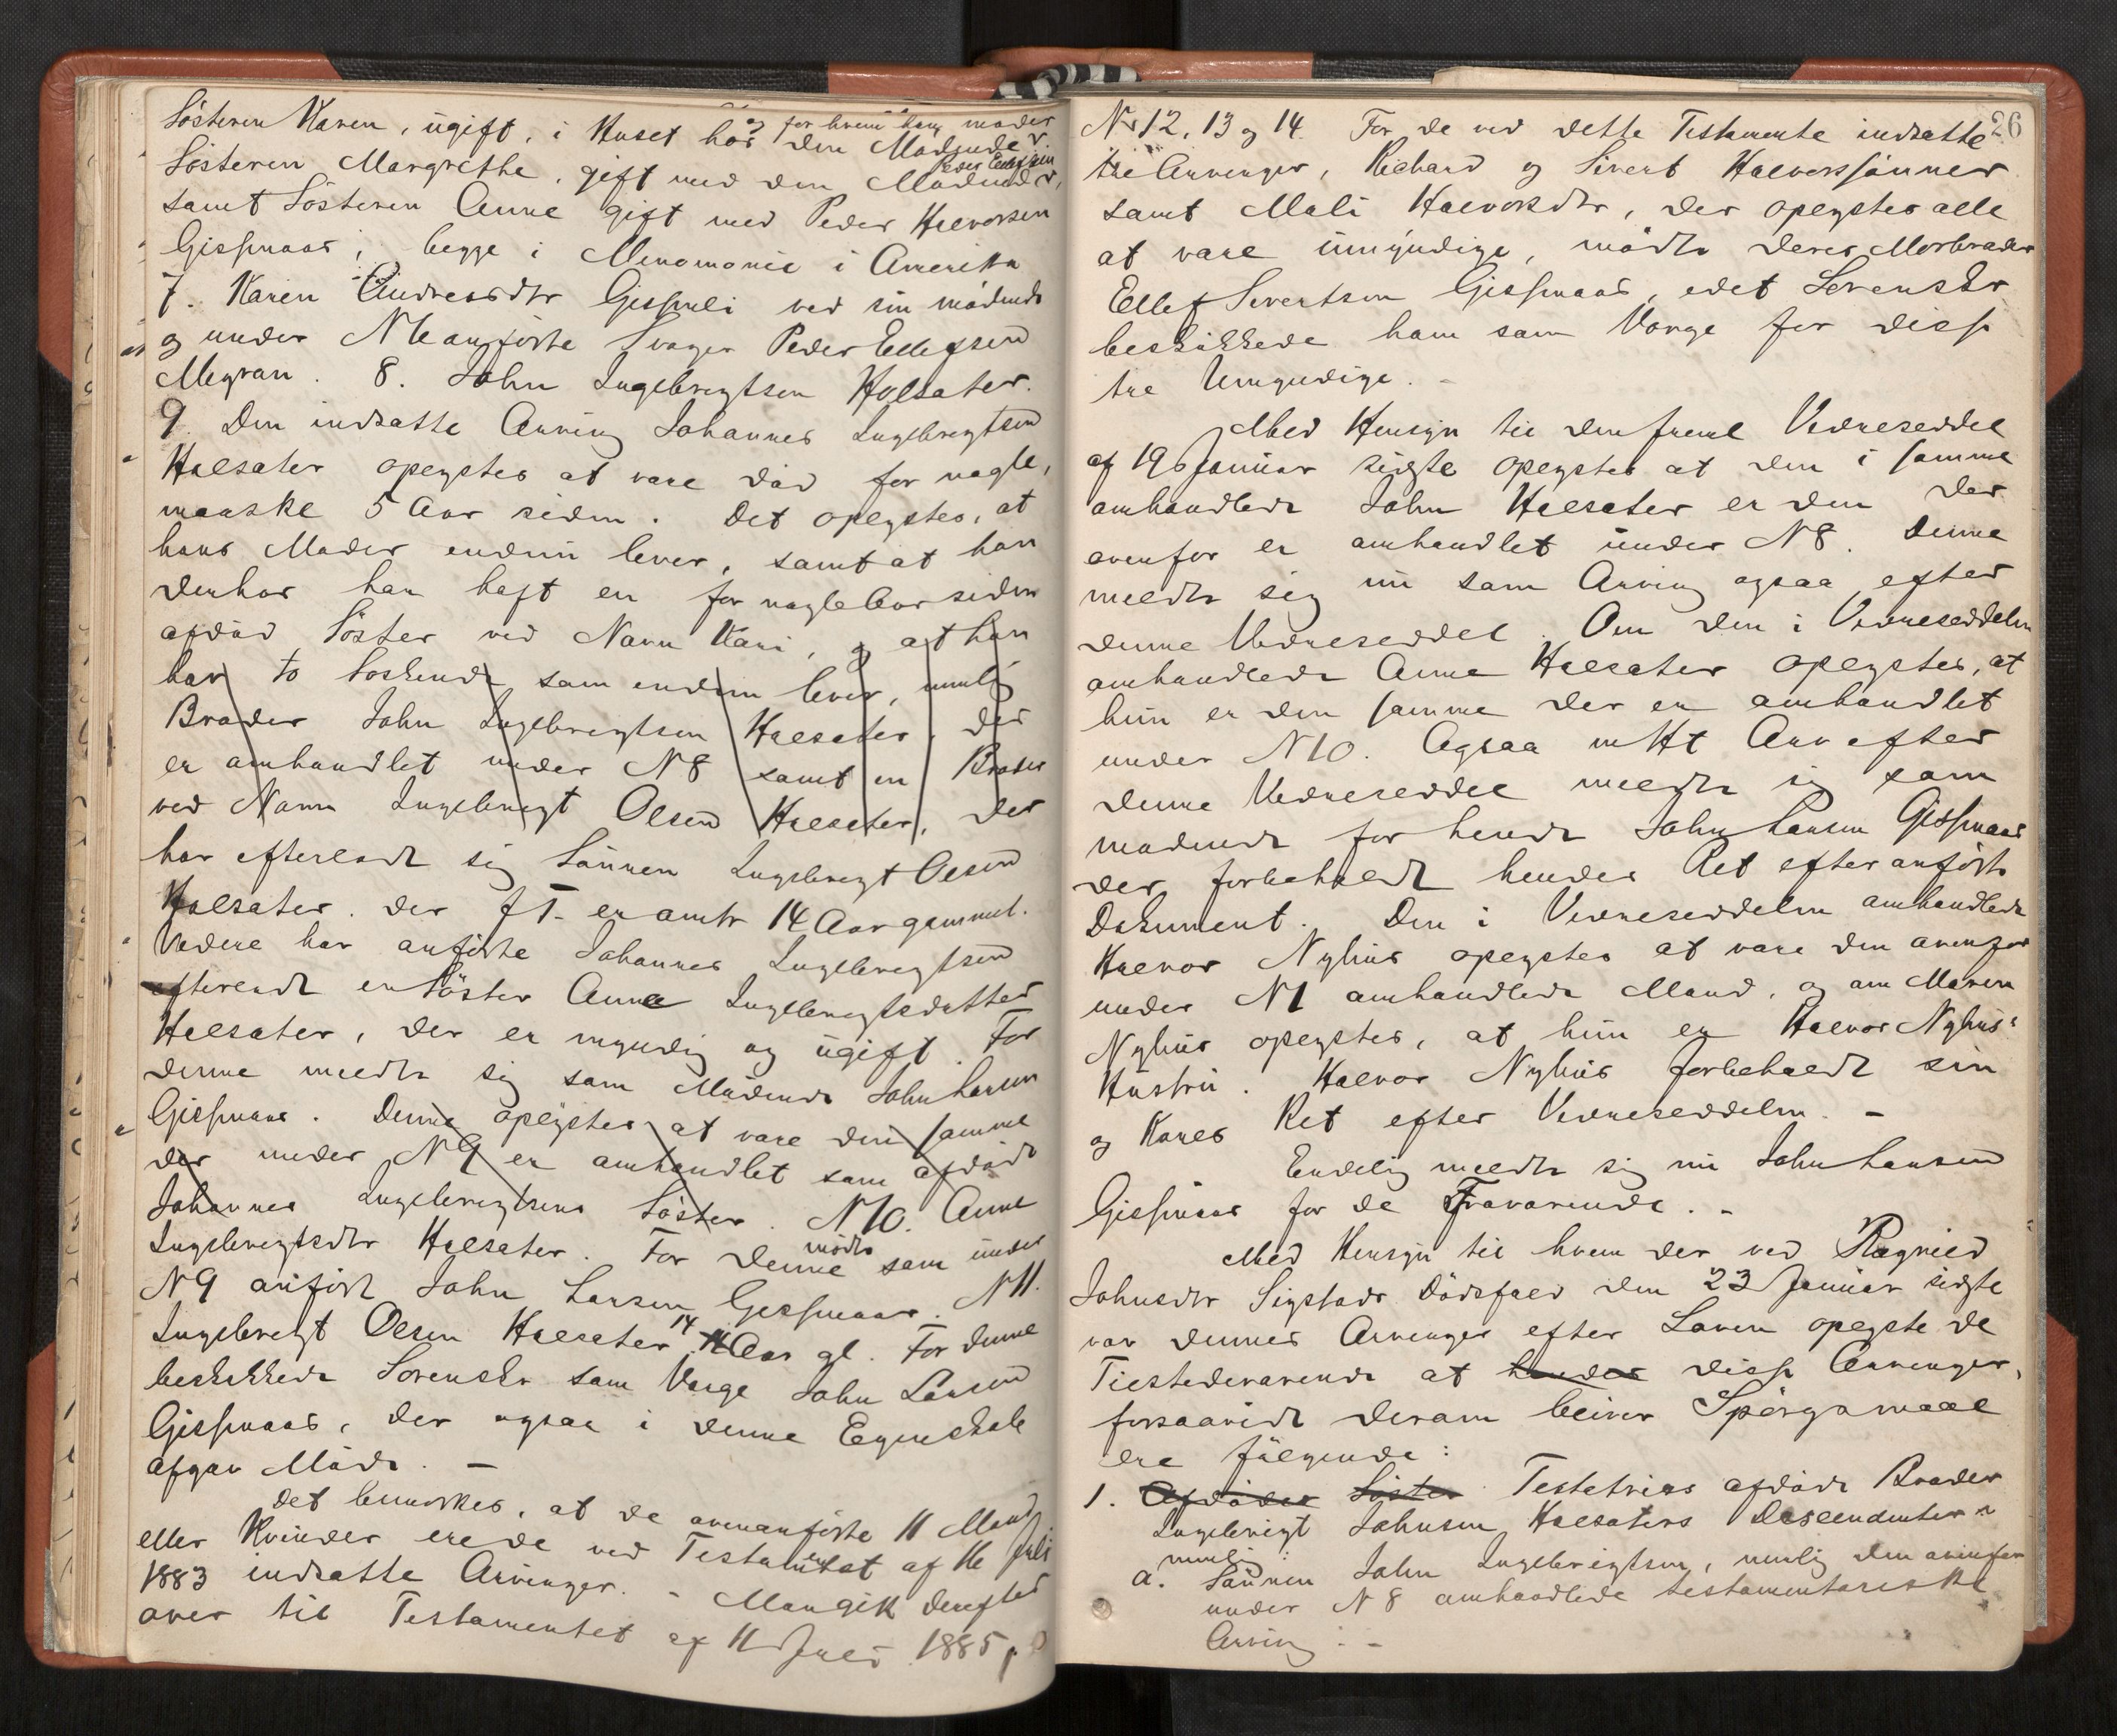 Søsteren Karen, ugift, i Huset hos og for hvem han møder den Mødende
Søsteren Margrethe, gift med den Mødende Peder Ellefsen
samt Søsteren Anne gift med Peder Halvorsen
Gissmaas, begge i Menomonie i Amerika
7. Karen Andreasdtr Gissmli ved sin mødende
og under N 6 anførte Svoger Peder Ellefsen
Megran. 8. John Ingebrigtsen Halsæter.
9. Den indsatte Arving Johannes Ingebrigtsen
Halsæter oplystes at være død for nogle,
maaske 5 Aar siden. Det oplystes, at
hans Moder endnu lever, samt at han
derhos har haft en for nogle Aar siden
afdød Søster ved Navn Kari, og at han
har to Søskende som endnu lever, nemlig
Broder John Ingebrigtsen Halsæter, der
er omhandlet under N 8 samt en Broder
ved Navn Ingebrigt Olsen Halsæter, der
har efterladt sig Sønnen Ingebrigt Olsen
Halsæter. der f T. er omtr 14 Aar gammel.
Videre har anførte Johannes Ingebrigtsen
efterladt en Søster Anne Ingebrigtsdatter
Halsæter, der er myndig og ugift. For
denne meldte sig som Mødende John Larsen
Gissmaas. Denne oplystes at være den samme
der under N 9 er omhandlet som afdøde
Johannes Ingebrigtsens Søster. N 10. Anne
Ingebrigtsdtr Halsæter. For denne mødte som under
N 9 anført John Larsen Gissmaas. N 11.
Ingebrigt Olsen Halsæter, 14 Aar gl. For denne
beskikkede Sorenskr som Værge John Larsen
Gissmaas, der ogsaa i denne Egenskab
afgav Møde. –
Det bemærkes, at de ovenanførte 11 Mænd
eller Kvinder ere de ved Testamentet af 16 Juli
1883 indsatte Arvinger. – Man gik derefter
over til Testamentet af 11 Juli 1885,
26
Nr 12, 13 og 14. For de ved dette Testamente indsatte
tre Arvinger, Richard og Sivert Halvorssønner
samt Mali Halvorsdtr, der oplystes alle
at være umyndige, mødte deres Morbroder
Ellef Sivertsen Gissmaas, idet Sorenskr
beskikkede ham som Værge for disse
tre Umyndige. –
Med Hensyn til den freml Vedkesseddel
af 19 Januar sidste oplystes at den i samme
omhandlede John Halsæter er den der
ovenfor er omhandlet under N 8. Denne
meldte sig nu som Arving ogsaa efter
denne Vedkesseddel. Om den i Vedkesseddelen
omhandlede Anne Halsæter oplystes, at
hun er den samme der er omhandlet
under N 10. Ogsaa Arv efter
denne Vedkesseddel meldte sig som
mødende for hende John Larsen Gissmaas
der forbeholdt hendes Ret efter anførte
Dokument. Den i Vedkesseddelen omhandlede
Halvor Nyhus oplystes at være den ovenfor
under N 1 omhandlede Mand, og om Maren
Nyhus oplystes, at hun er Halvor Nyhus'
Hustru. Halvor Nyhus forbeholdt sin
og Kones Ret efter Vedkesseddelen. –
Endelig meldte sig nu John Larsen
Gissmaas for de Fraværende. –
Med Hensyn til hvem der ved Ragnild
Johnsdtr Sigstads Dødsfald den 23 Januar sidste
var dennes Arvinger efter Loven oplyste de
Tilstedeværende at hendes disse Arvinger,
forsaavidt derom bliver Spørgsmaal
ere følgende:
1. Afdødes Søster Testatrixs afdøde Broder
Ingebrigt Johnsen Halsæters Descendenter
nemlig:
a. Sønnen John Ingebrigtsen, nemlig den ovenfor
under N 8 omhandlede testamentariske
Arving. –